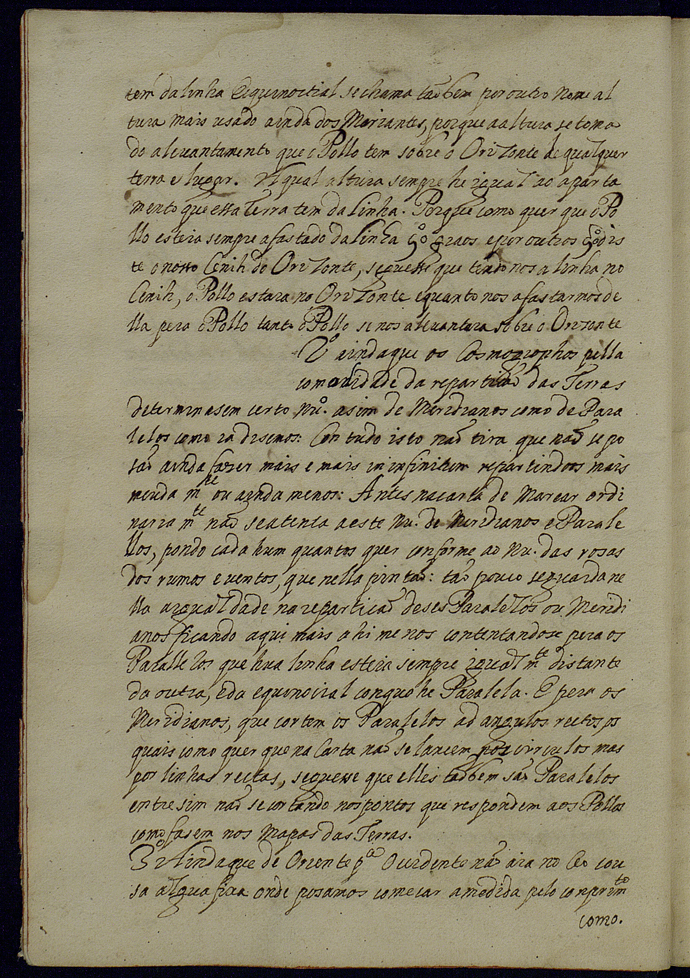 tem da linha Equinoctial se chama tãobem por outro nome al
tura mais usado ainda dos Mariantes, porque a altura se toma
do alevantamento que o Pollo tem sobre o Orizonte de qualquer
terra e lugar. A qual altura sempre he igual ao aparta
mento que essa terra tem da linha. Porque como quer que o Po
llo esteia sempre afastado da linha 90 graos e por outros 90 dis
te o nosso Cenih do Orizonte, seguesse que tendo nos a linha no
Cenih, o Pollo estara no Orizonte e quanto nos afastarmos de
lla pera o Pollo tanto o Pollo se nos alevantara sobre o Orizonte
2º ainda que os Cosmographos pella
comodidade da repartição das Terras
determinasem certo Nu.º asim de Meridianos como de Para
lelos como ia disemos: Com tudo isto não tira que não se po
são ainda fazer mais e mais in infinitum repartindoos mais
meuda m.te ou ainda menos: Antes na carta de Marear ordi
naria m.te não se atenta a este Nu. de Meridianos e Parale
llos, pondo cada hum quantos quer conforme ao Nu. das rosas
dos rumos e ventos, que nella pinta: tão pouco se guarda ne
lla a igualdade na repartição deses Paralelos ou Meridi
anos ficando aqui mais ahi menos contentandose pera os
Parallelos que hua linha esteia sempre igual m.te distante
da outra, e da equinocial con quo he Paralela. E pera os
Meridianos, que cortem os Paralelos ad angulos rectos os
quais como quer que na Carta não se lancem por circulos mas
por linhas rectas, seguesse que elles tãobem são Paralelos
entre sim não se cortando nos pontos que respondem aos Pollos
como fasem nos Mapas das Terras.
3º Ainda que de Oriente p.ª Occidente não aia no Ceo cou
sa algua fixa onde posamos comecar a medida pelo conprim.to
como.